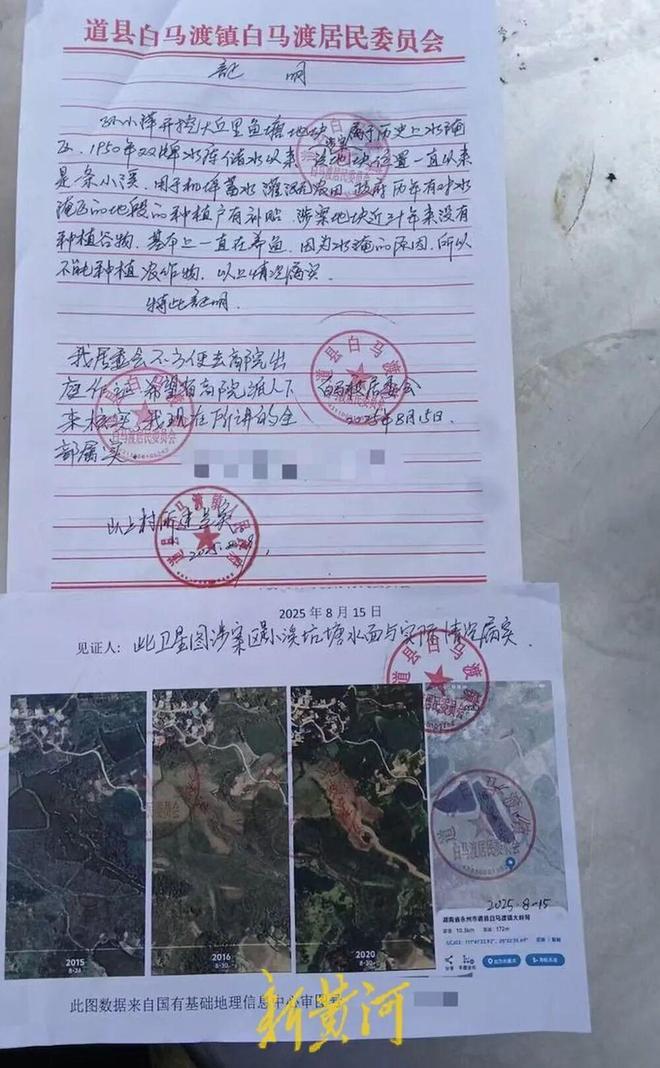 道县白马渡镇白马渡居民委员会
证 明
孙小萍开挖大丘里鱼塘地块 属于历史上水淹
区、1950年双牌水库储水以来、该地块位置一直以来
是条小溪、用于积存蓄水灌溉农田、政府历年有对水
淹区的地段的种植户有补贴、涉案地块近三十年来没有
种植谷物、基本上一直在养鱼、因为水淹的原因、所以
不能种植农作物、以上情况属实、
特此证明、
我居委会不方便去高院出
庭作证、希望省高院派人下
来核实、我现在所讲的全
部属实
居委会
2025年8月15日、
山上村 属实
2025年8月15日
见证人：此卫星图涉案区是小溪坑塘水面与实际情况属实、
2015
8-26
2016
8-30
2020
8-30
2025-8-15
湖南省永州市道县白马渡镇大岭背
此图数据来自国有基础地理信息中心审图号
道县白马渡镇
白马渡居民委员会
新黄河